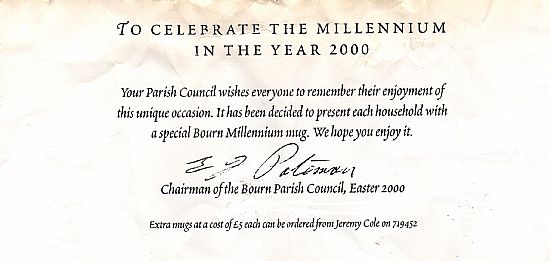 TO CELEBRATE THE MILLENNIUM
IN THE YEAR 2000
Your Parish Council wishes everyone to remember their enjoyment of
this unique occasion. It has been decided to present each household with
a special Bourn Millennium mug. We hope you enjoy it.
Pateman
Chairman of the Bourn Parish Council, Easter 2000
Extra mugs at a cost of £5 each can be ordered from Jeremy Cole on 719452